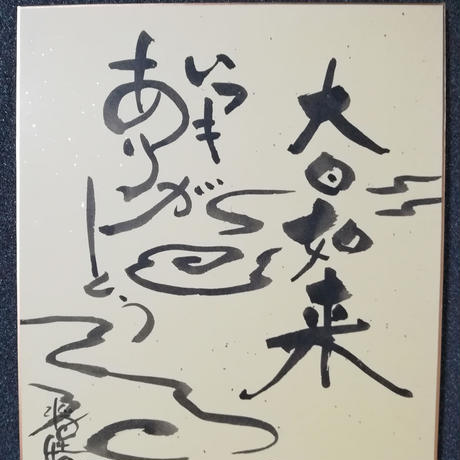 大日如来
いつも
ありがとう